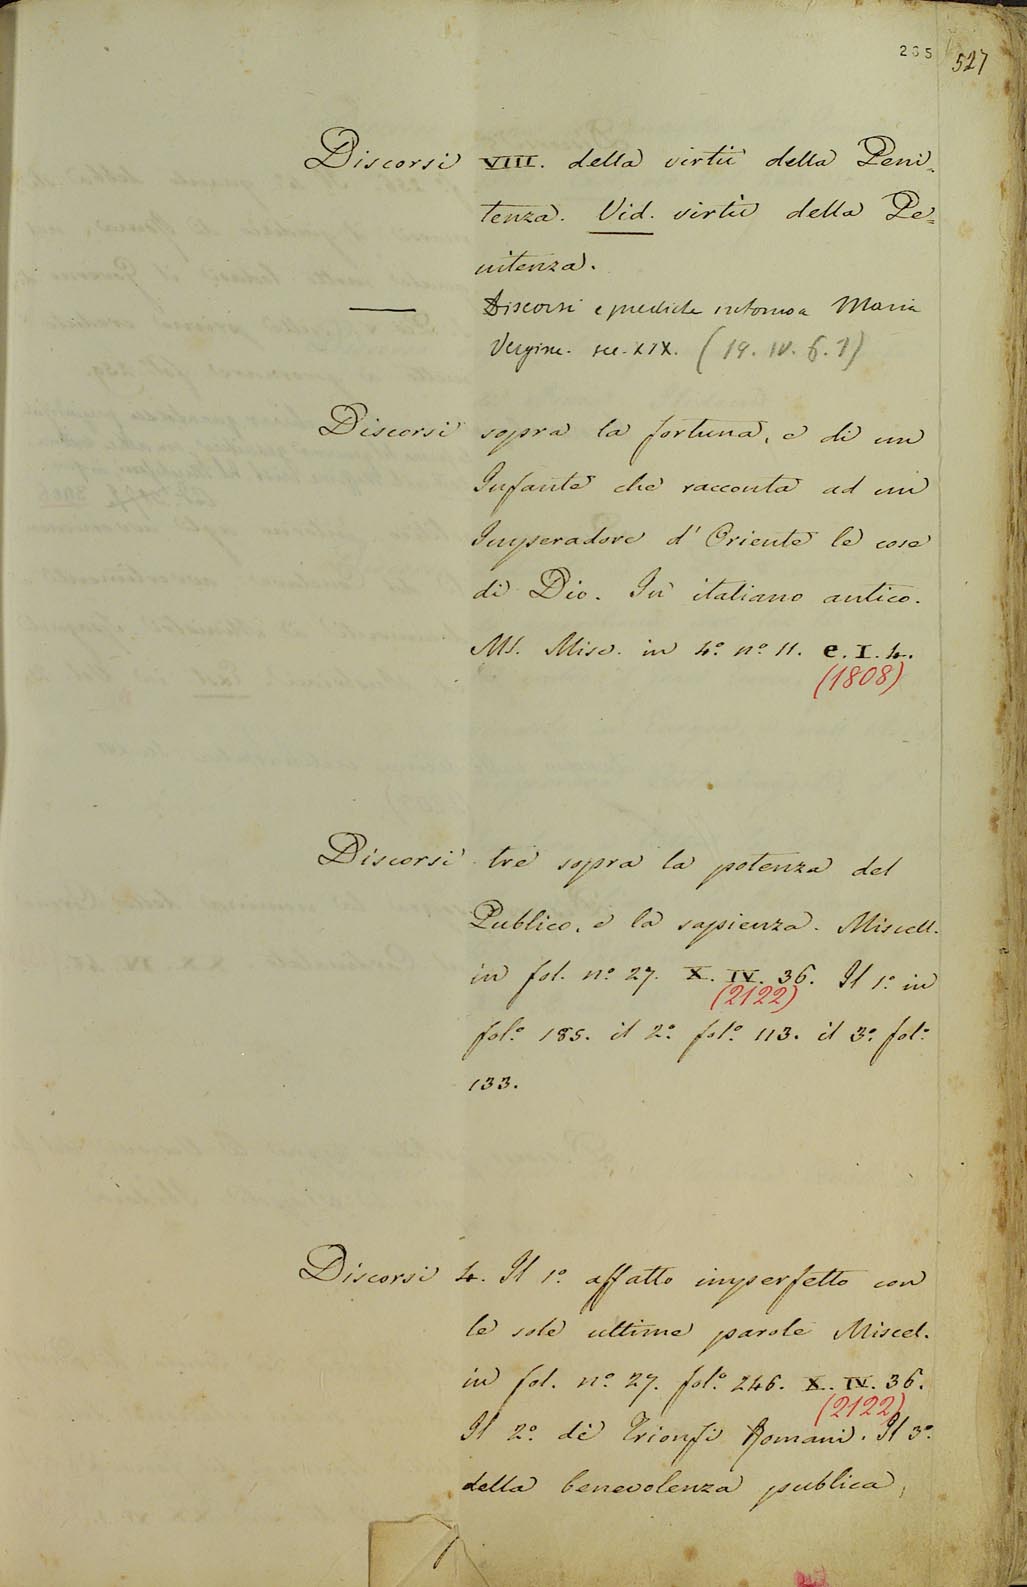 265 527
Discorsi VIII. della virtù della Peni-
tenza. Vid. virtù della Pe=
nitenza.
— Discorsi e prediche intorno a Maria
Vergine. sec. XIX. (19. IV. 6. 1)
Discorsi sopra la fortuna, e di un
Infante che racconta ad un
Imperadore d' Oriente le cose
di Dio. In italiano antico.
Ms. Misc. in 4.º nº 11. e. I. 4.
(1808)
Discorsi tre sopra la potenza del
Publico, e la sapienza. Miscell.
in fol. nº 27. X. IV. 36. Il 1.º in
(2122)
fol.º 185. il 2.º fol.º 113. il 3.º fol.º
133.
Discorsi 4. Il 1.º affatto imperfetto con
le sole ultime parole Miscel.
in fol. nº 27. fol.º 246. X. IV. 36.
(2122)
Il 2.º dè Trionfi Romani. Il 3.º
della benevolenza publica,